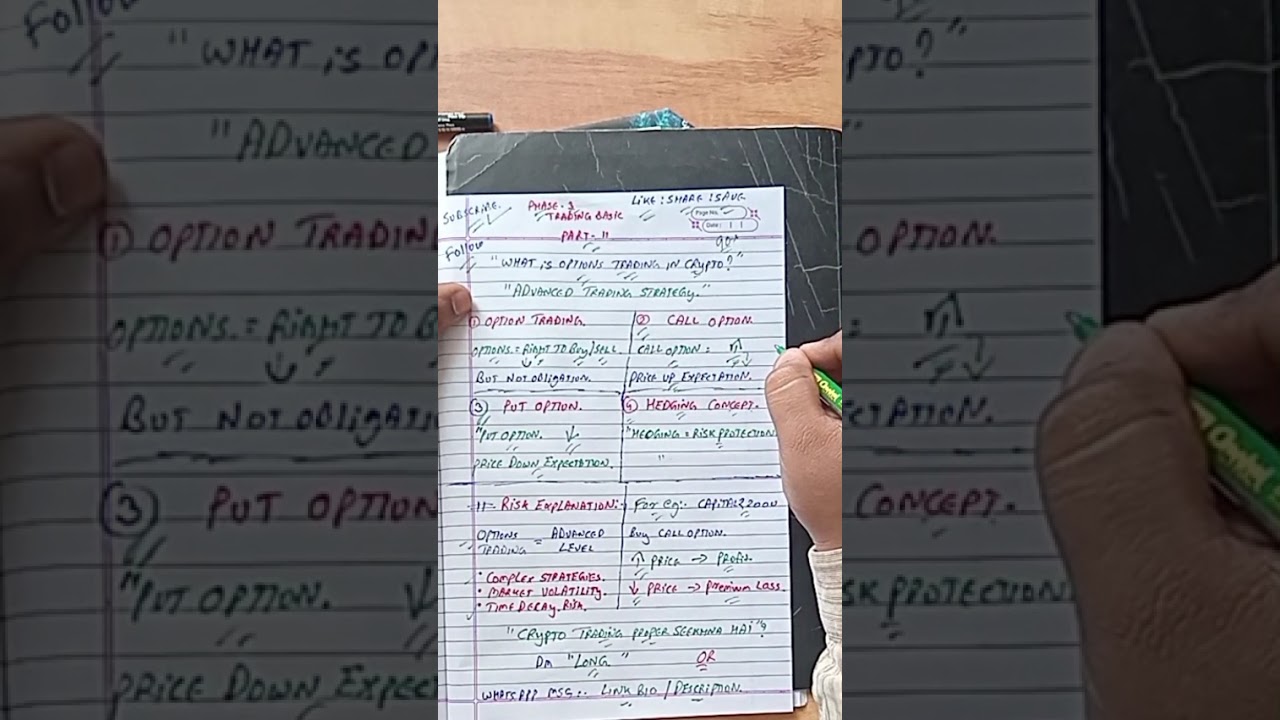 SUBSCRIBE.
PHASE-3
TRADING BASIC
LIKE : SHARE : SAVE
Page No.
Date:
PART-11
Follow
"WHAT is OPTIONS TRADING IN CRYPTO?"
"ADVANCED TRADING STRATEGY."
① OPTION TRADING.
OPTIONS. = RIGHT TO BUY/SELL.
BUT NOT OBLIGATION.
② CALL OPTION.
CALL OPTION =
PRICE UP EXPECTATION.
③ PUT OPTION.
"PUT OPTION. ↓
PRICE DOWN EXPECTATION.
④ HEDGING CONCEPT.
"HEDGING = RISK PROTECTION
"
-11- RISK EXPLANATION:-
OPTIONS TRADING = ADVANCED LEVEL
• COMPLEX STRATEGIES.
• MARKET VOLATILITY.
• TIME DECAY RISK.
For eg:- CAPITAL ₹2000
Buy CALL OPTION.
↑ PRICE → PROFIT.
↓ PRICE → Premium Loss.
"CRYPTO TRADING PROPER SEEKHNA HAI"?
Dm "LONG" OR
WHATSAPP MSG:- LINK BIO / DESCRIPTION.